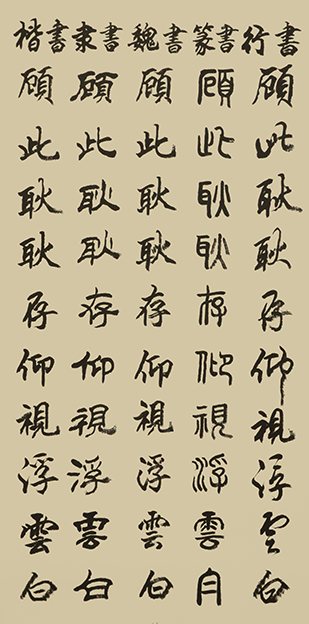 楷書 顧此耿耿存仰視浮雲白
隶書 顧此耿耿存仰視浮雲白
魏書 顧此耿耿存仰視浮雲白
篆書 顧此耿耿存仰視浮雲白
行書 顧此耿耿存仰視浮雲白